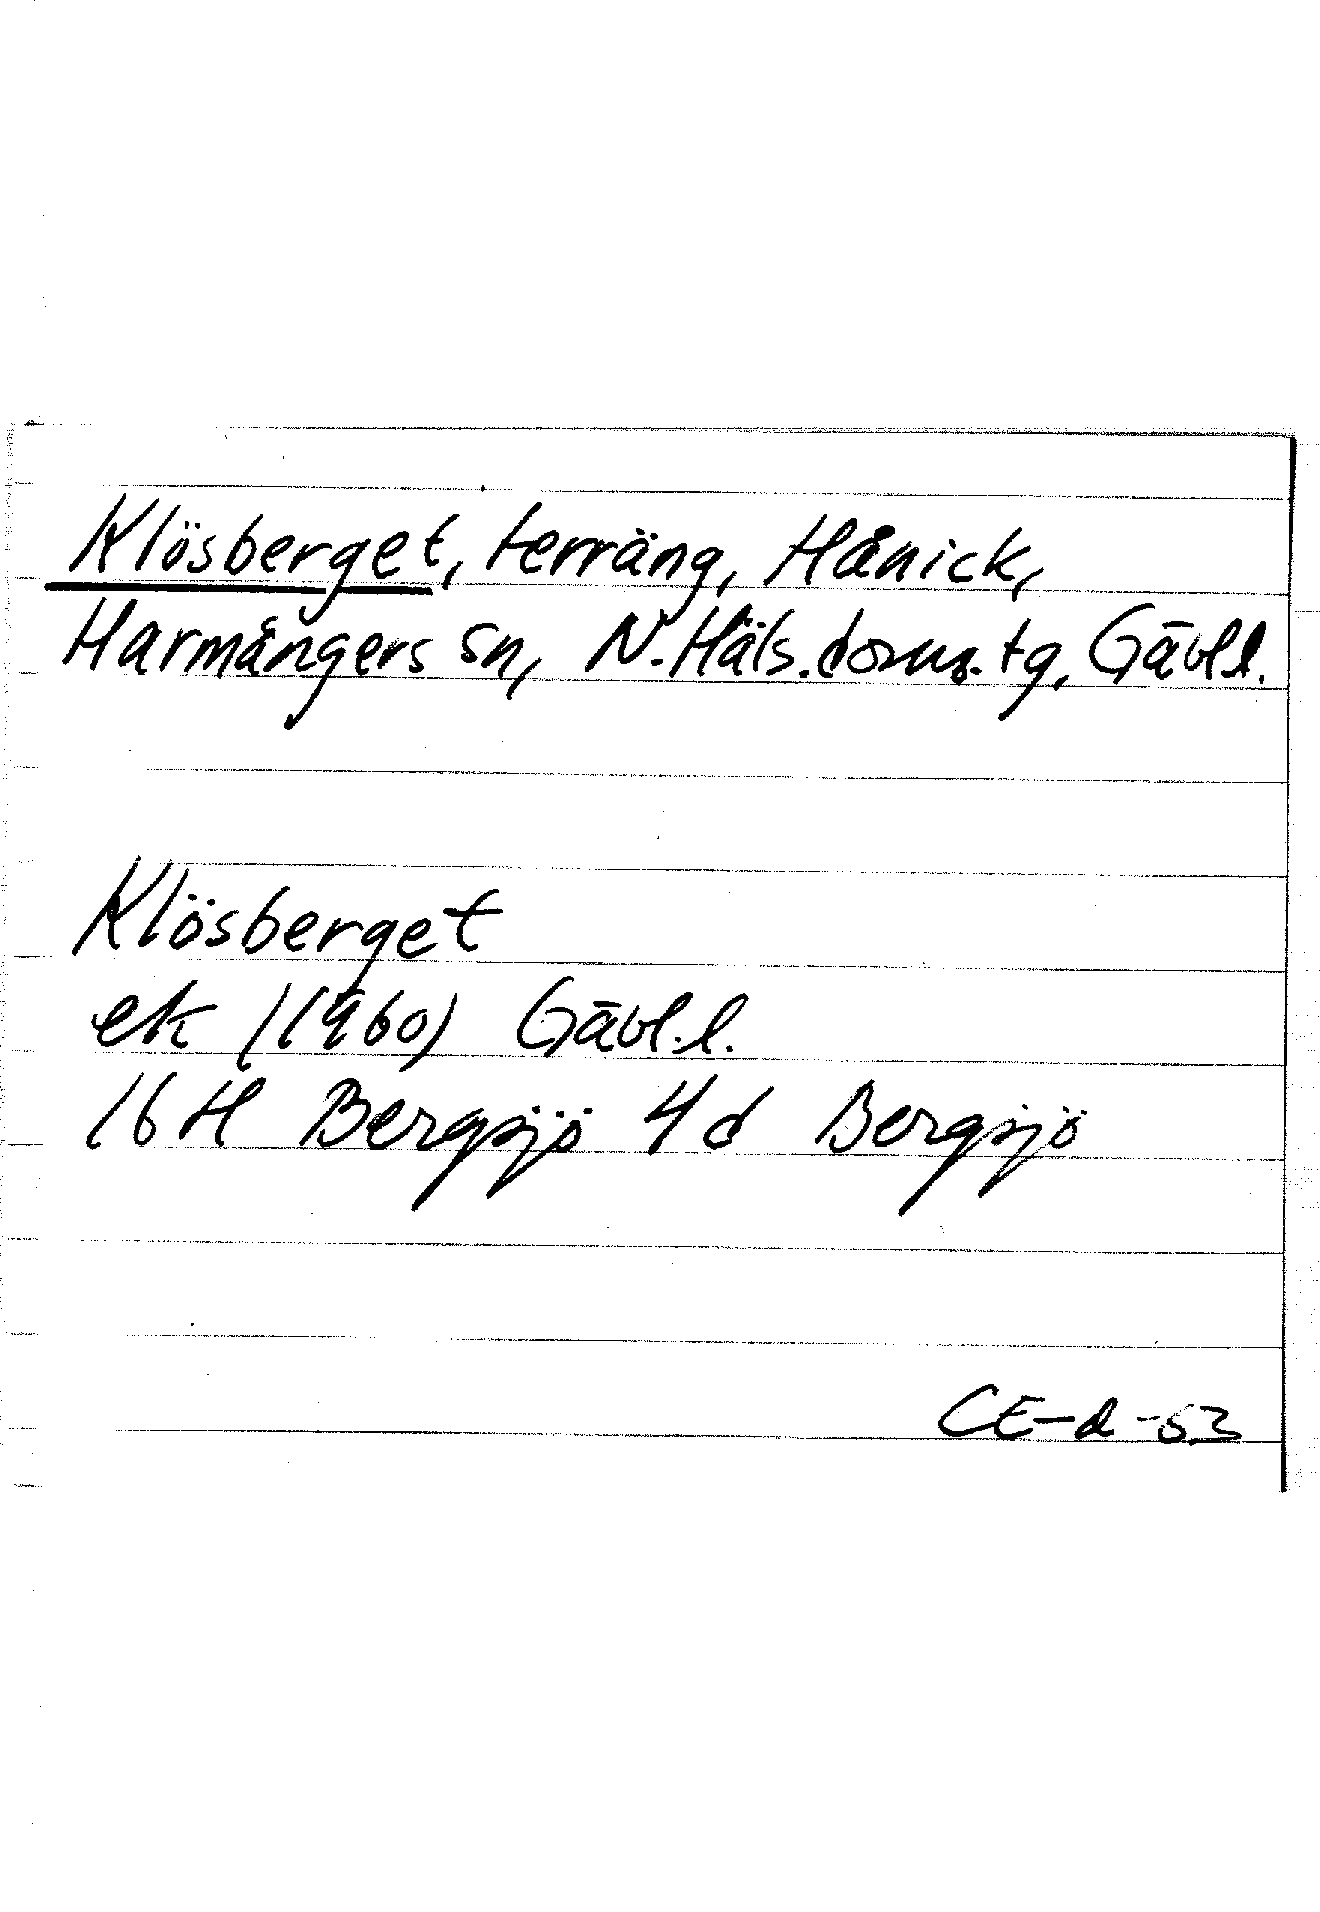 Klösberget, terräng, Hånick,
Harmångers sn, N. Häls. doms. tg, Gävl l.
Klösberget
ek (1960) Gävl. l.
16 H Bergsjö 4 d Bergsjö
CE-d-53